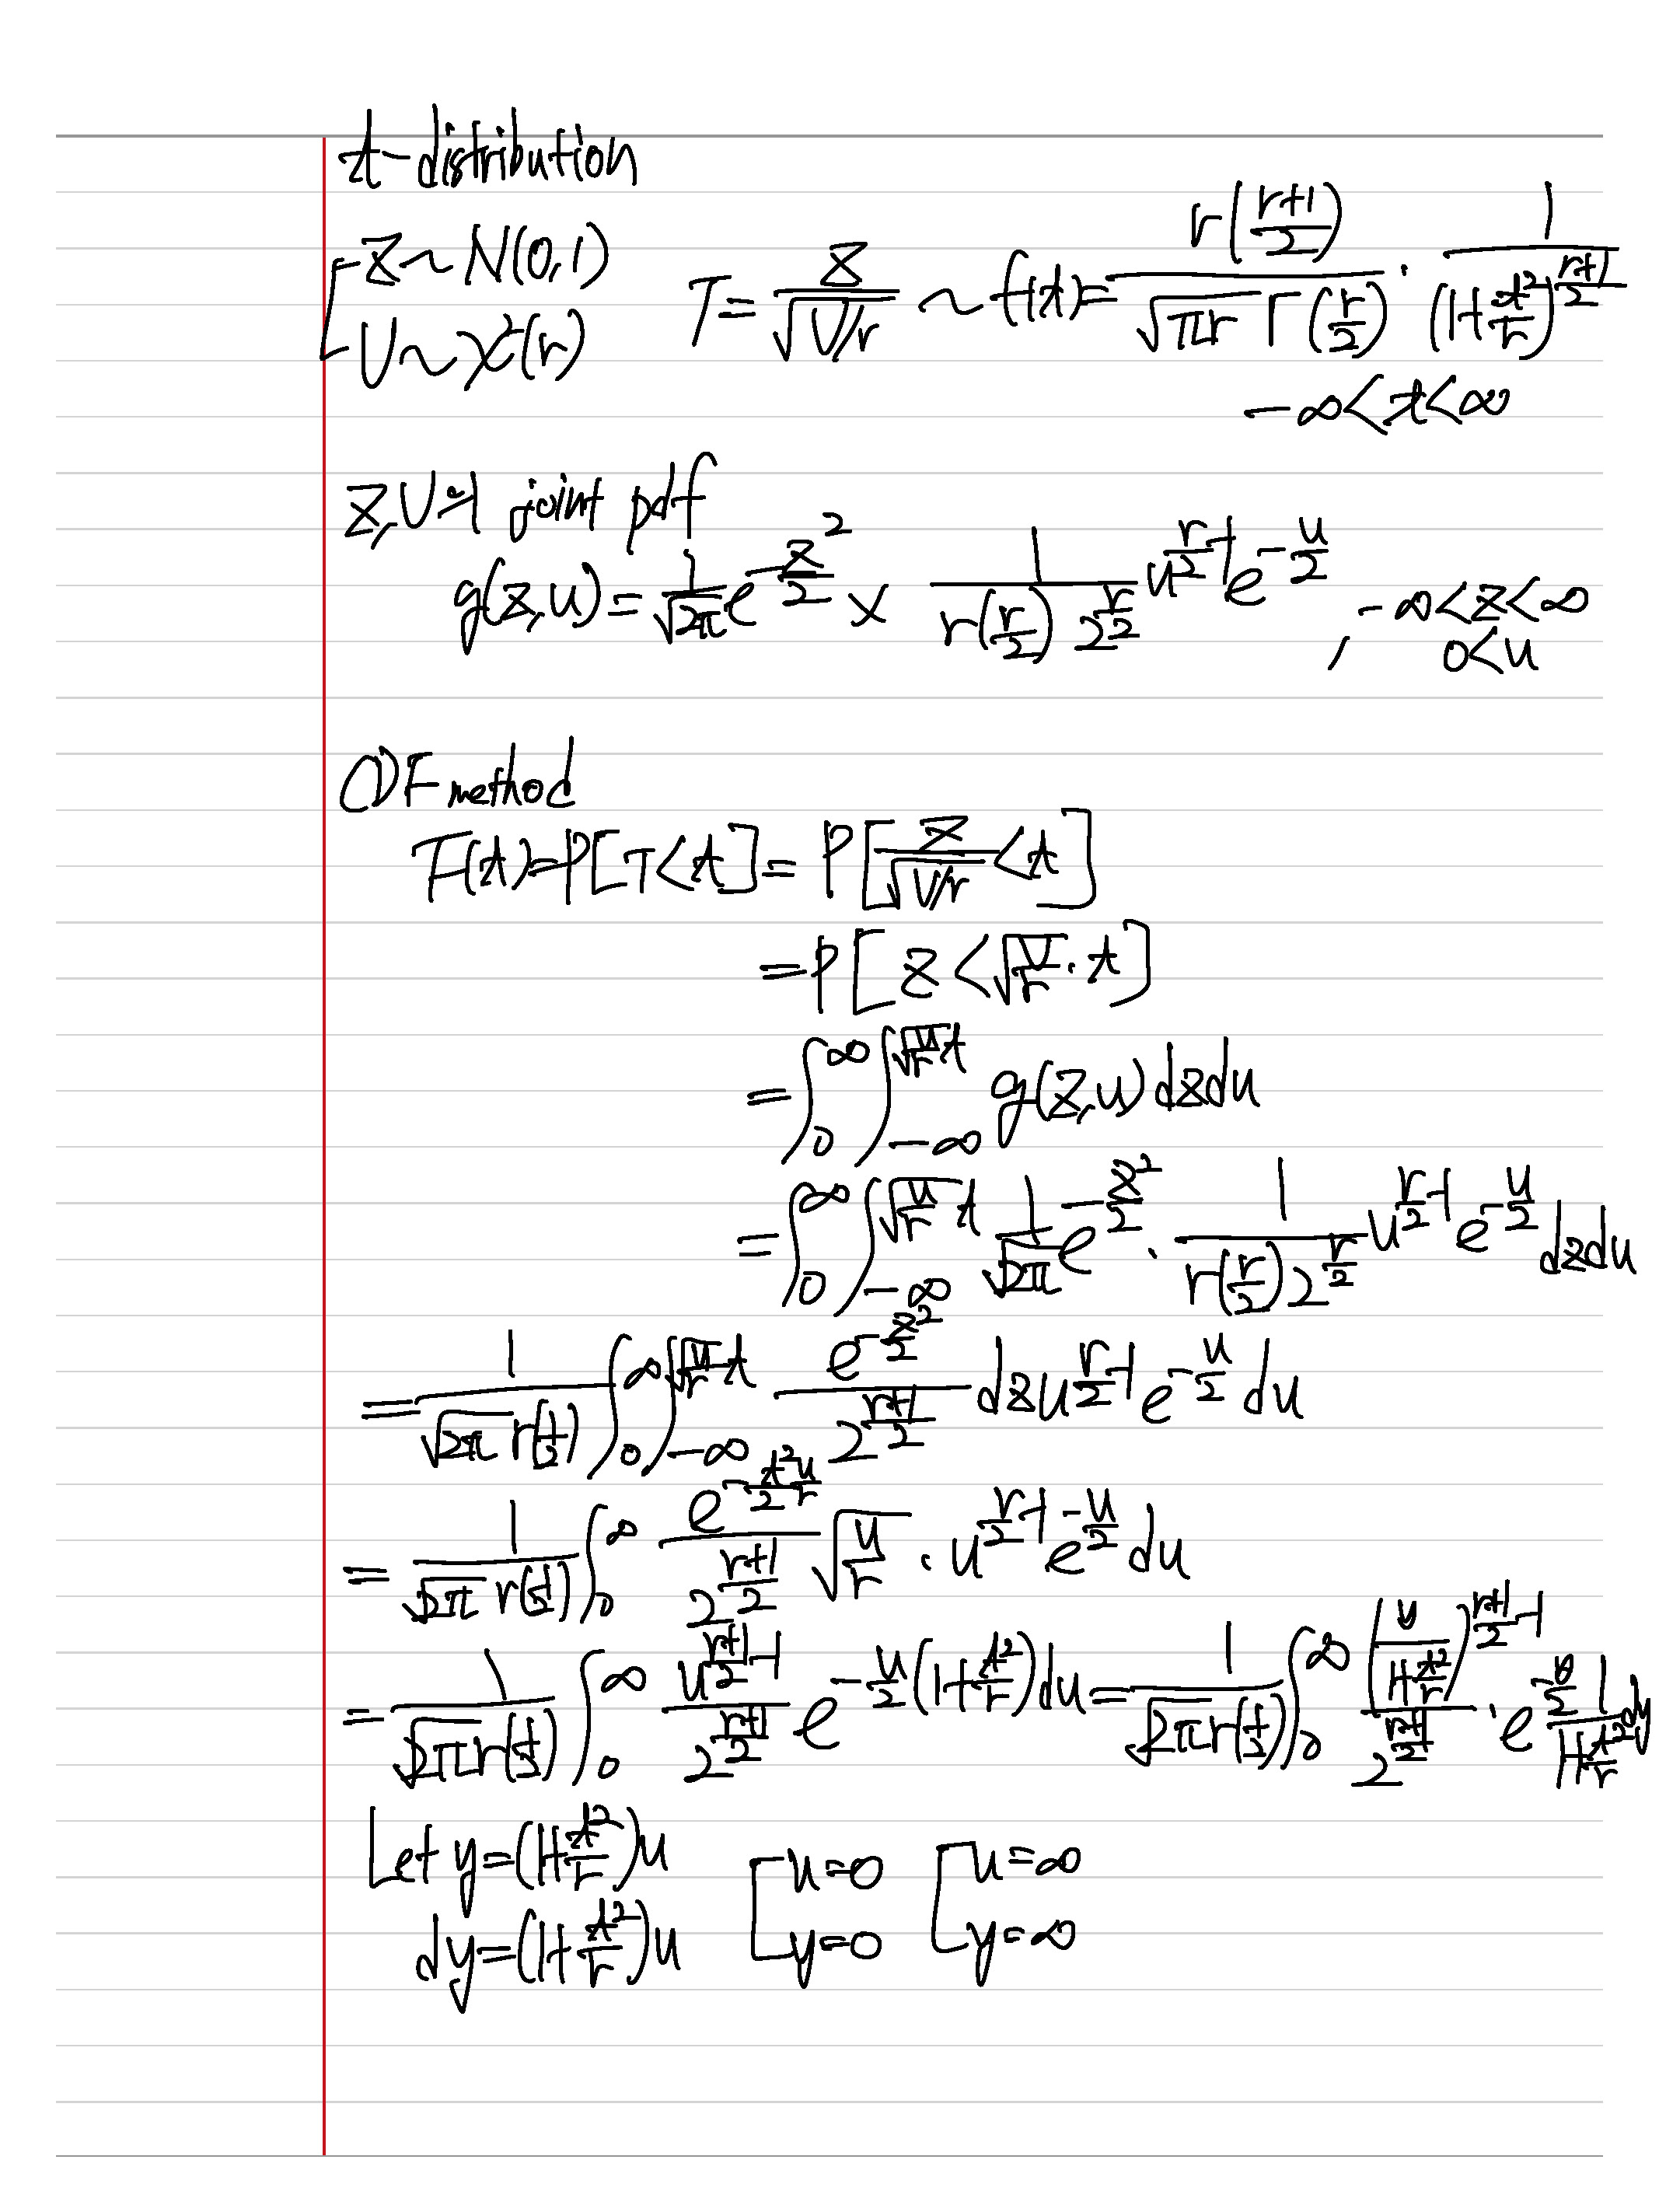 t-distribution
Z~N(0,1)
U~χ²(r)
T = Z/√(U/r) ~ f(t) = Γ((r+1)/2)/(√(πr) Γ(r/2)) · 1/(1+t²/r)^((r+1)/2)
-∞<t<∞
Z,U의 joint pdf
g(z,u) = 1/√(2π) e^(-z²/2) × 1/(Γ(r/2) 2^(r/2)) u^(r/2-1) e^(-u/2) , -∞<z<∞
0<u
CDF method
F(t)=P[T<t] = P[Z/√(U/r) < t]
=P[Z < √(U/r) · t]
= ∫_0^∞ ∫_{-∞}^{√(u/r) t} g(z,u) dzdu
= ∫_0^∞ ∫_{-∞}^{√(u/r) t} 1/√(2π) e^(-z²/2) · 1/(Γ(r/2) 2^(r/2)) u^(r/2-1) e^(-u/2) dzdu
= 1/(√(2π) Γ(r/2)) ∫_0^∞ ∫_{-∞}^{√(u/r) t} e^(-z²/2)/2^((r+1)/2) dz u^(r/2-1) e^(-u/2) du
= 1/(√(2π) Γ(r/2)) ∫_0^∞ e^(-t²/2 u/r)/2^((r+1)/2) √(u/r) · u^(r/2-1) e^(-u/2) du
= 1/(√(2π) Γ(r/2)) ∫_0^∞ u^((r+1)/2-1)/2^((r+1)/2) e^(-u/2(1+t²/r)) du = 1/(√(2π) Γ(r/2)) ∫_0^∞ (y/(1+t²/r))^((r+1)/2-1)/2^((r+1)/2) · e^(-y/2) 1/(1+t²/r) dy
Let y=(1+t²/r)u [u=0 [u=∞
dy=(1+t²/r)u y=0 y=∞